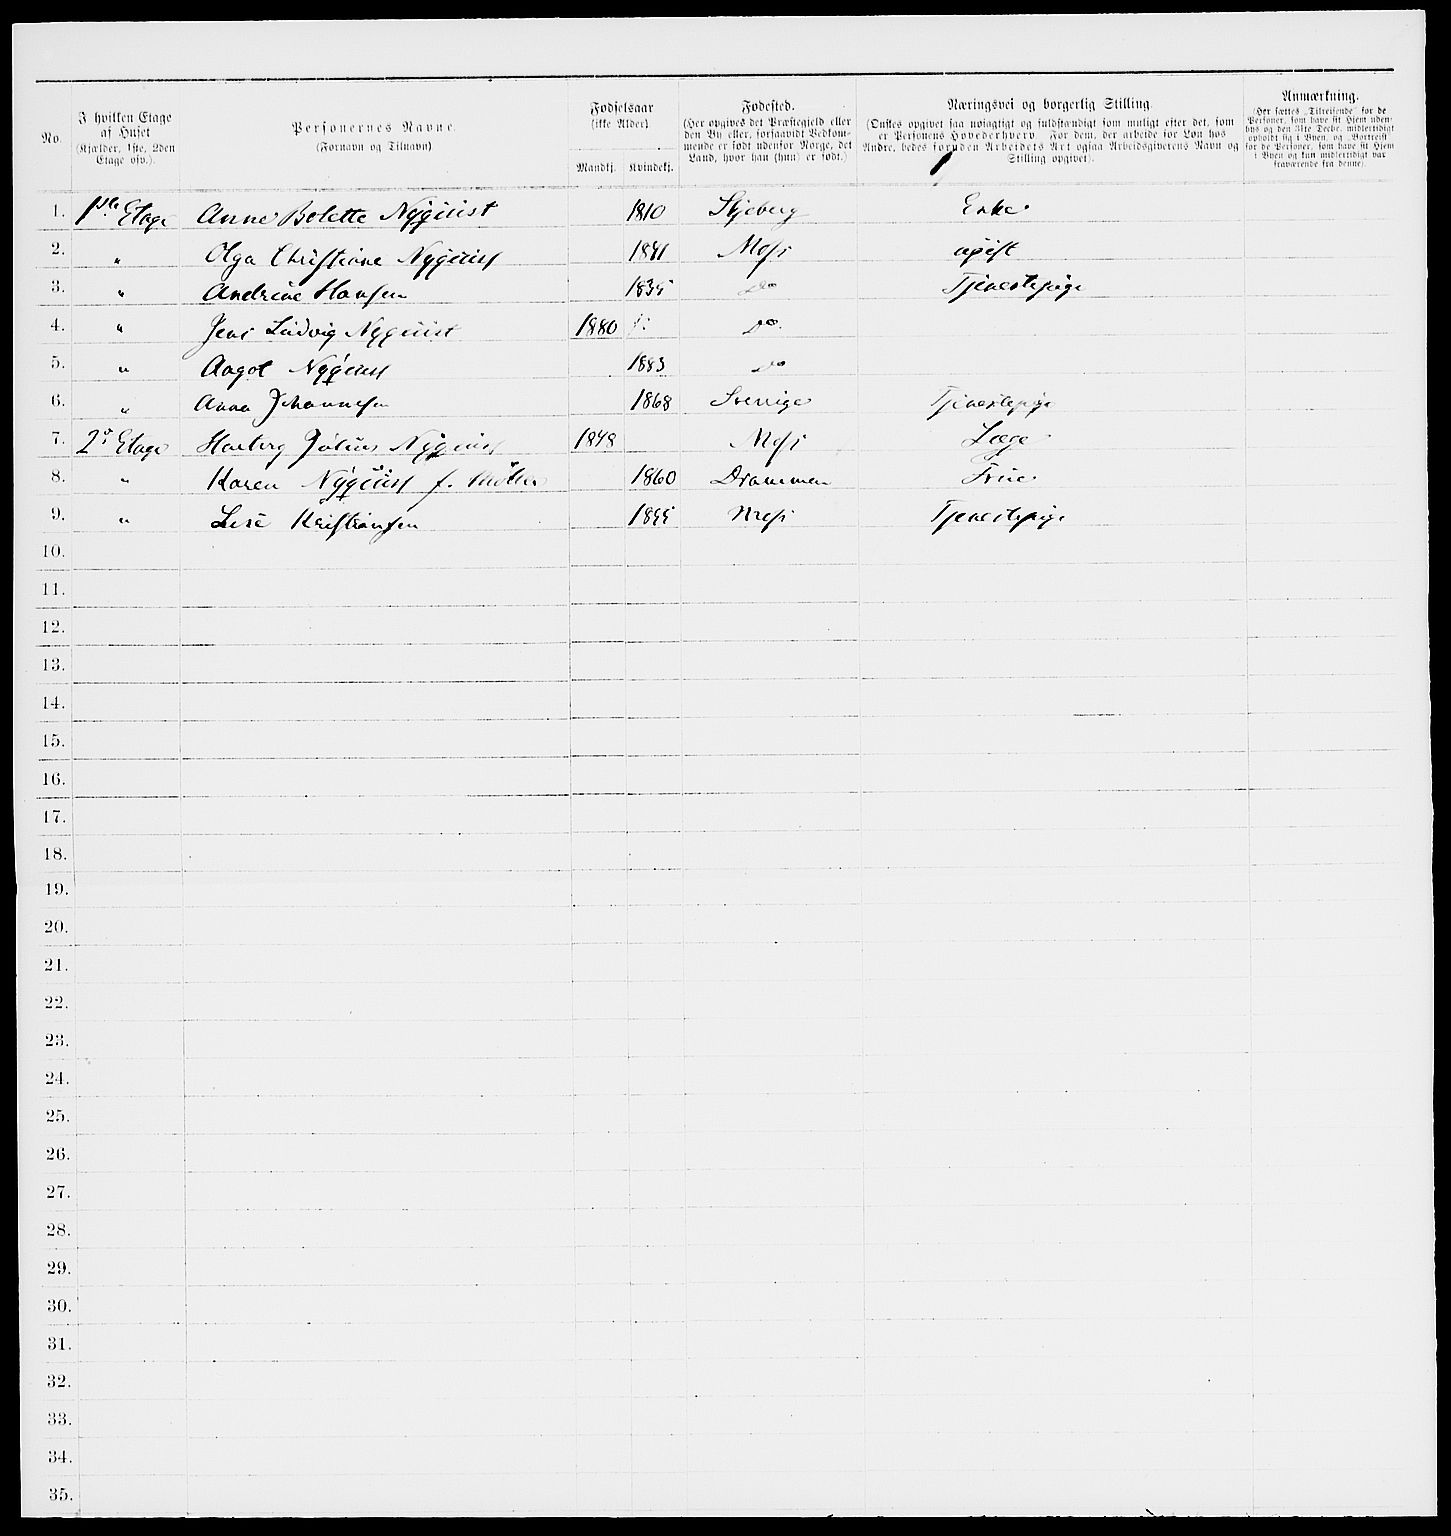 No.
I hvilken Etage
af Huset
(Kjælder, 1ste, 2den
Etage osv.).
Personernes Navne.
(Fornavn og Tilnavn)
Fødselsaar
(ikke Alder)
Mandkj. Kvindekj.
Fødested.
(Her opgives det Præstegjeld eller
den By eller, forsaavidt Vedkom-
mende er født udenfor Norge, det
Land, hvor han (hun) er født.)
Næringsvei og borgerlig Stilling.
(Ønskes opgivet saa nøiagtigt og fuldstændigt som muligt efter det, som
er Personens Hovederhverv. For dem, der arbeide for Løn hos
Andre, bedes foruden Arbeidets Art ogsaa Arbeidsgiverens Navn og
Stilling opgivet).
Anmærkning.
(Her sættes „Tilreisende" for de
Personer, som have sit Hjem uden-
bys og den 31te Decbr. midlertidigt
opholdt sig i Byen, og „Bortreist"
for de Personer, som have sit Hjem
i Byen og kun midlertidigt var
fraværende fra denne).
1. 1ste Etage Anne Bolette Nyquist 1810 Skjeberg Enke
2. " Olga Christiane Nyquist 1841 Moss ugift
3. " Andrine Hansen 1835 Do Tjenestepige
4. " Jens Ludvig Nyquist 1880 Do.
5. " Aagot Nyquist 1883 Do
6. " Anna Johannesen 1868 Sverrige Tjenestepige
7. 2d Etage Hartvig Julius Nyquist 1848 Moss Læge
8. " Karen Nyquist f. 1860 Drammen Frue
9. " Lise Kristiansen 1855 Moss Tjenestepige
10.
11.
12.
13.
14.
15.
16.
17.
18.
19.
20.
21.
22.
23.
24.
25.
26.
27.
28.
29.
30.
31.
32.
33.
34.
35.